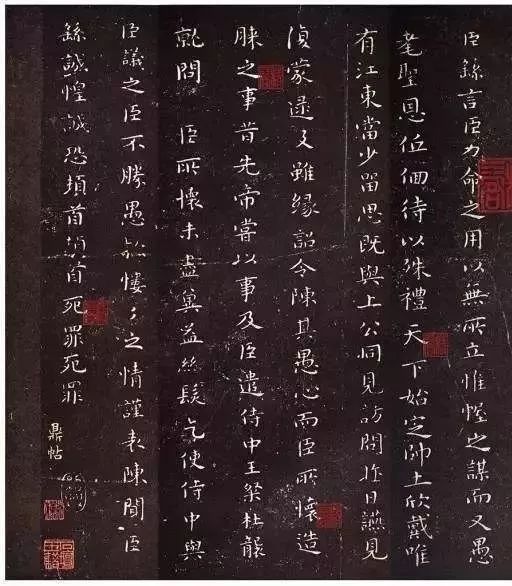 臣繇言臣力命之用以無所立惟幄之謀而又愚
耄聖恩低佪待以殊禮天下始定帥土欣戴唯
有江東當少留思既與上公同見訪問昨日讌見
復蒙逮及雖緣詔令陳其愚心而臣所懷造
膝之事昔先帝嘗以事及臣遣侍中王粲杜襲
就問 臣所懷未盡奚益絲髮乞使侍中與
臣議之臣不勝愚款慺々之情謹表陳聞臣
繇誠惶誠恐頓首頓首死罪死罪
鼎帖